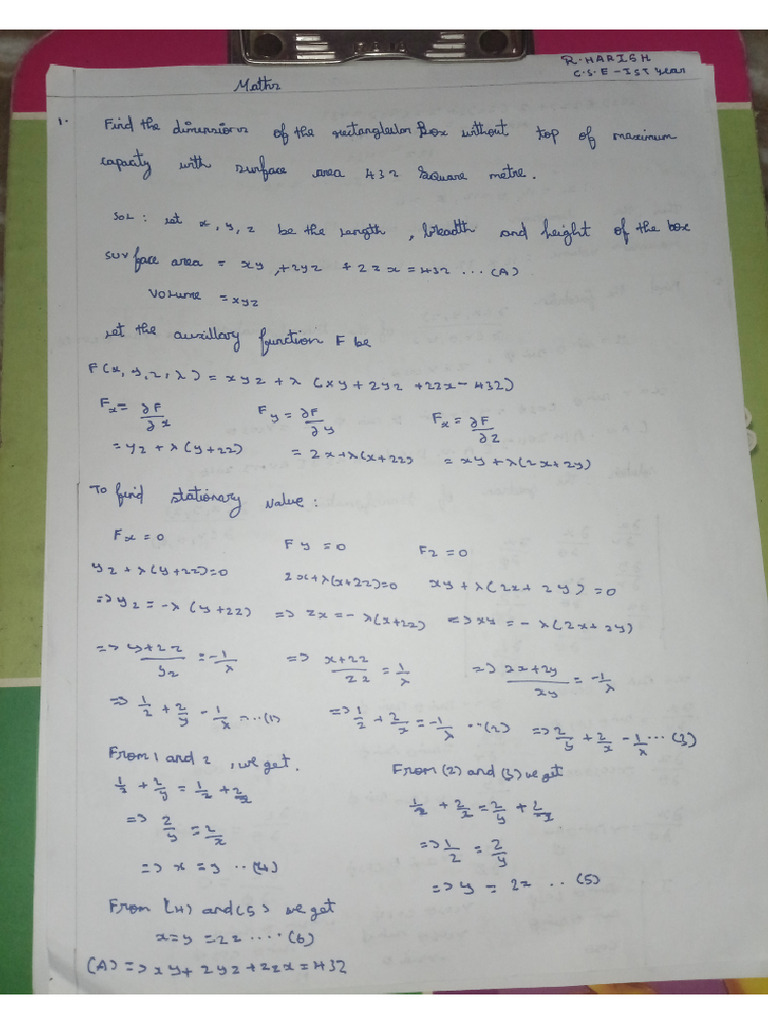 R. HARISH
C.S.E - IST Year
Maths
1. Find the dimensions of the rectangleular Box without top of maximum
capacity with surface area 432 square metre.
Sol : Let x, y, z be the length, breadth and height of the box
surface area = xy + 2yz + 2zx = 432 ... (A)
Volume = xyz
Let the auxillary function F be
F(x, y, z, λ) = xyz + λ (xy + 2yz + 2zx - 432)
Fx = ∂F/∂x Fy = ∂F/∂y Fx = ∂F/∂z
= yz + λ(y+2z) = zx + λ(x+2z) = xy + λ(2x+2y)
To find stationary value :
Fx = 0 Fy = 0 Fz = 0
yz + λ(y+2z) = 0 zx + λ(x+2z) = 0 xy + λ(2x + 2y) = 0
=> yz = -λ (y+2z) => zx = -λ(x+2z) => xy = -λ(2x + 2y)
=> y+2z/yz = -1/λ => x+2z/zx = 1/λ => 2x+2y/xy = -1/λ
=> 1/z + 2/y - 1/λ ...(1) => 1/z + 2/x = -1/λ ...(2) => 2/y + 2/x - 1/λ ...(3)
From 1 and 2, we get. From (2) and (3) we get
1/z + 2/y = 1/z + 2/x 1/z + 2/x = 2/y + 2/x
=> 2/y = 2/x => 1/z = 2/y
=> x = y ..(4) => y = 2z .. (5)
From (4) and (5) we get
x = y = 2z .... (6)
(A) => xy + 2yz + 2zx = 432